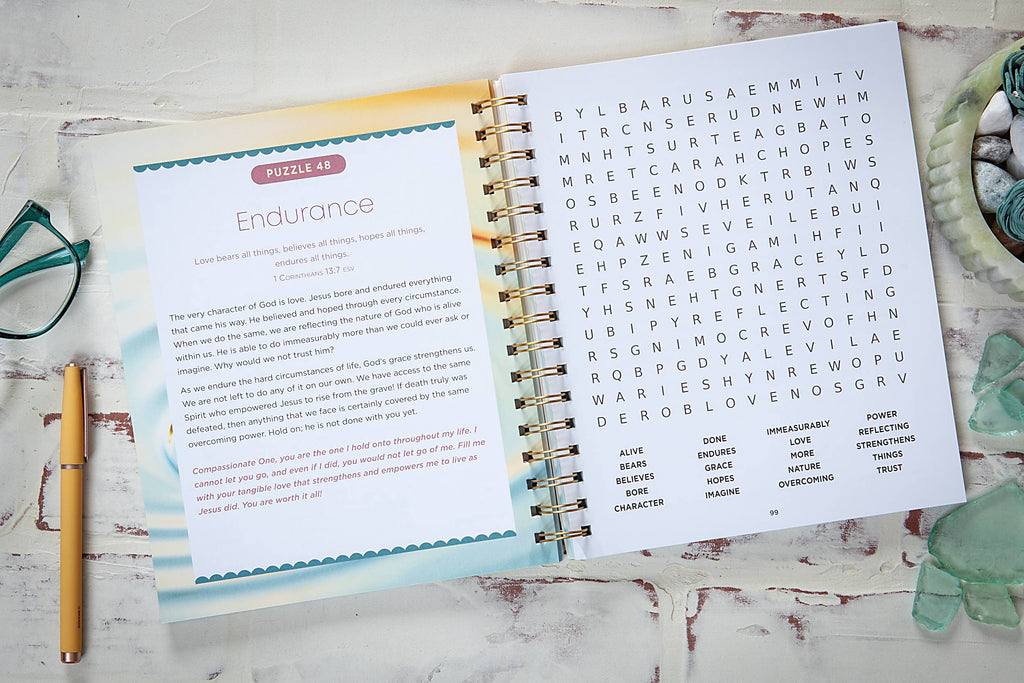 PUZZLE 48
Endurance
Love bears all things, believes all things, hopes all things,
endures all things.
1 CORINTHIANS 13:7 ESV
The very character of God is love. Jesus bore and endured everything
that came his way. He believed and hoped through every circumstance.
When we do the same, we are reflecting the nature of God who is alive
within us. He is able to do immeasurably more than we could ever ask or
imagine. Why would we not trust him?
As we endure the hard circumstances of life, God's grace strengthens us.
We are not left to do any of it on our own. We have access to the same
Spirit who empowered Jesus to rise from the grave! If death truly was
defeated, then anything that we face is certainly covered by the same
overcoming power. Hold on; he is not done with you yet.
Compassionate One, you are the one I hold onto throughout my life. I
cannot let you go, and even if I did, you would not let go of me. Fill me
with your tangible love that strengthens and empowers me to live as
Jesus did. You are worth it all!
B Y L B A R U S A E M M I T V
I T R C N S E R U D N E W H M
M N H T S U R T E A G B A T O
M R E T C A R A H C H O P E S
O S B E E N O D K T R B I W S
R U R Z F I V H E R U T A N Q
E Q A W W S E V E I L E B U I
E H P Z E N I G A M I H F I I
T F S R A E B G R A C E Y L D
Y H S N E H T G N E R T S F D
U B I P Y R E F L E C T I N G
R S G N I M O C R E V O F H N
R Q B P G D Y A L E V I L A E
W A R I E S H Y N R E W O P U
D E R O B L O V E N O S G R V
ALIVE
BEARS
BELIEVES
BORE
CHARACTER
DONE
ENDURES
GRACE
HOPES
IMAGINE
IMMEASURABLY
LOVE
MORE
NATURE
OVERCOMING
POWER
REFLECTING
STRENGTHENS
THINGS
TRUST
99